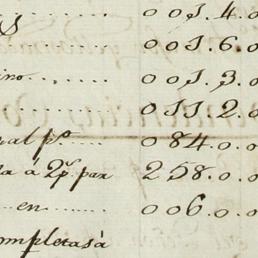 S ........ 001.4.0
........ 001.6.0
ino ........ 001.3.0
........ 011.2.0
ral p.º ........ 084.0.0
la á 2p.s par 258.0.0
en ........ 006.0.0
completas á